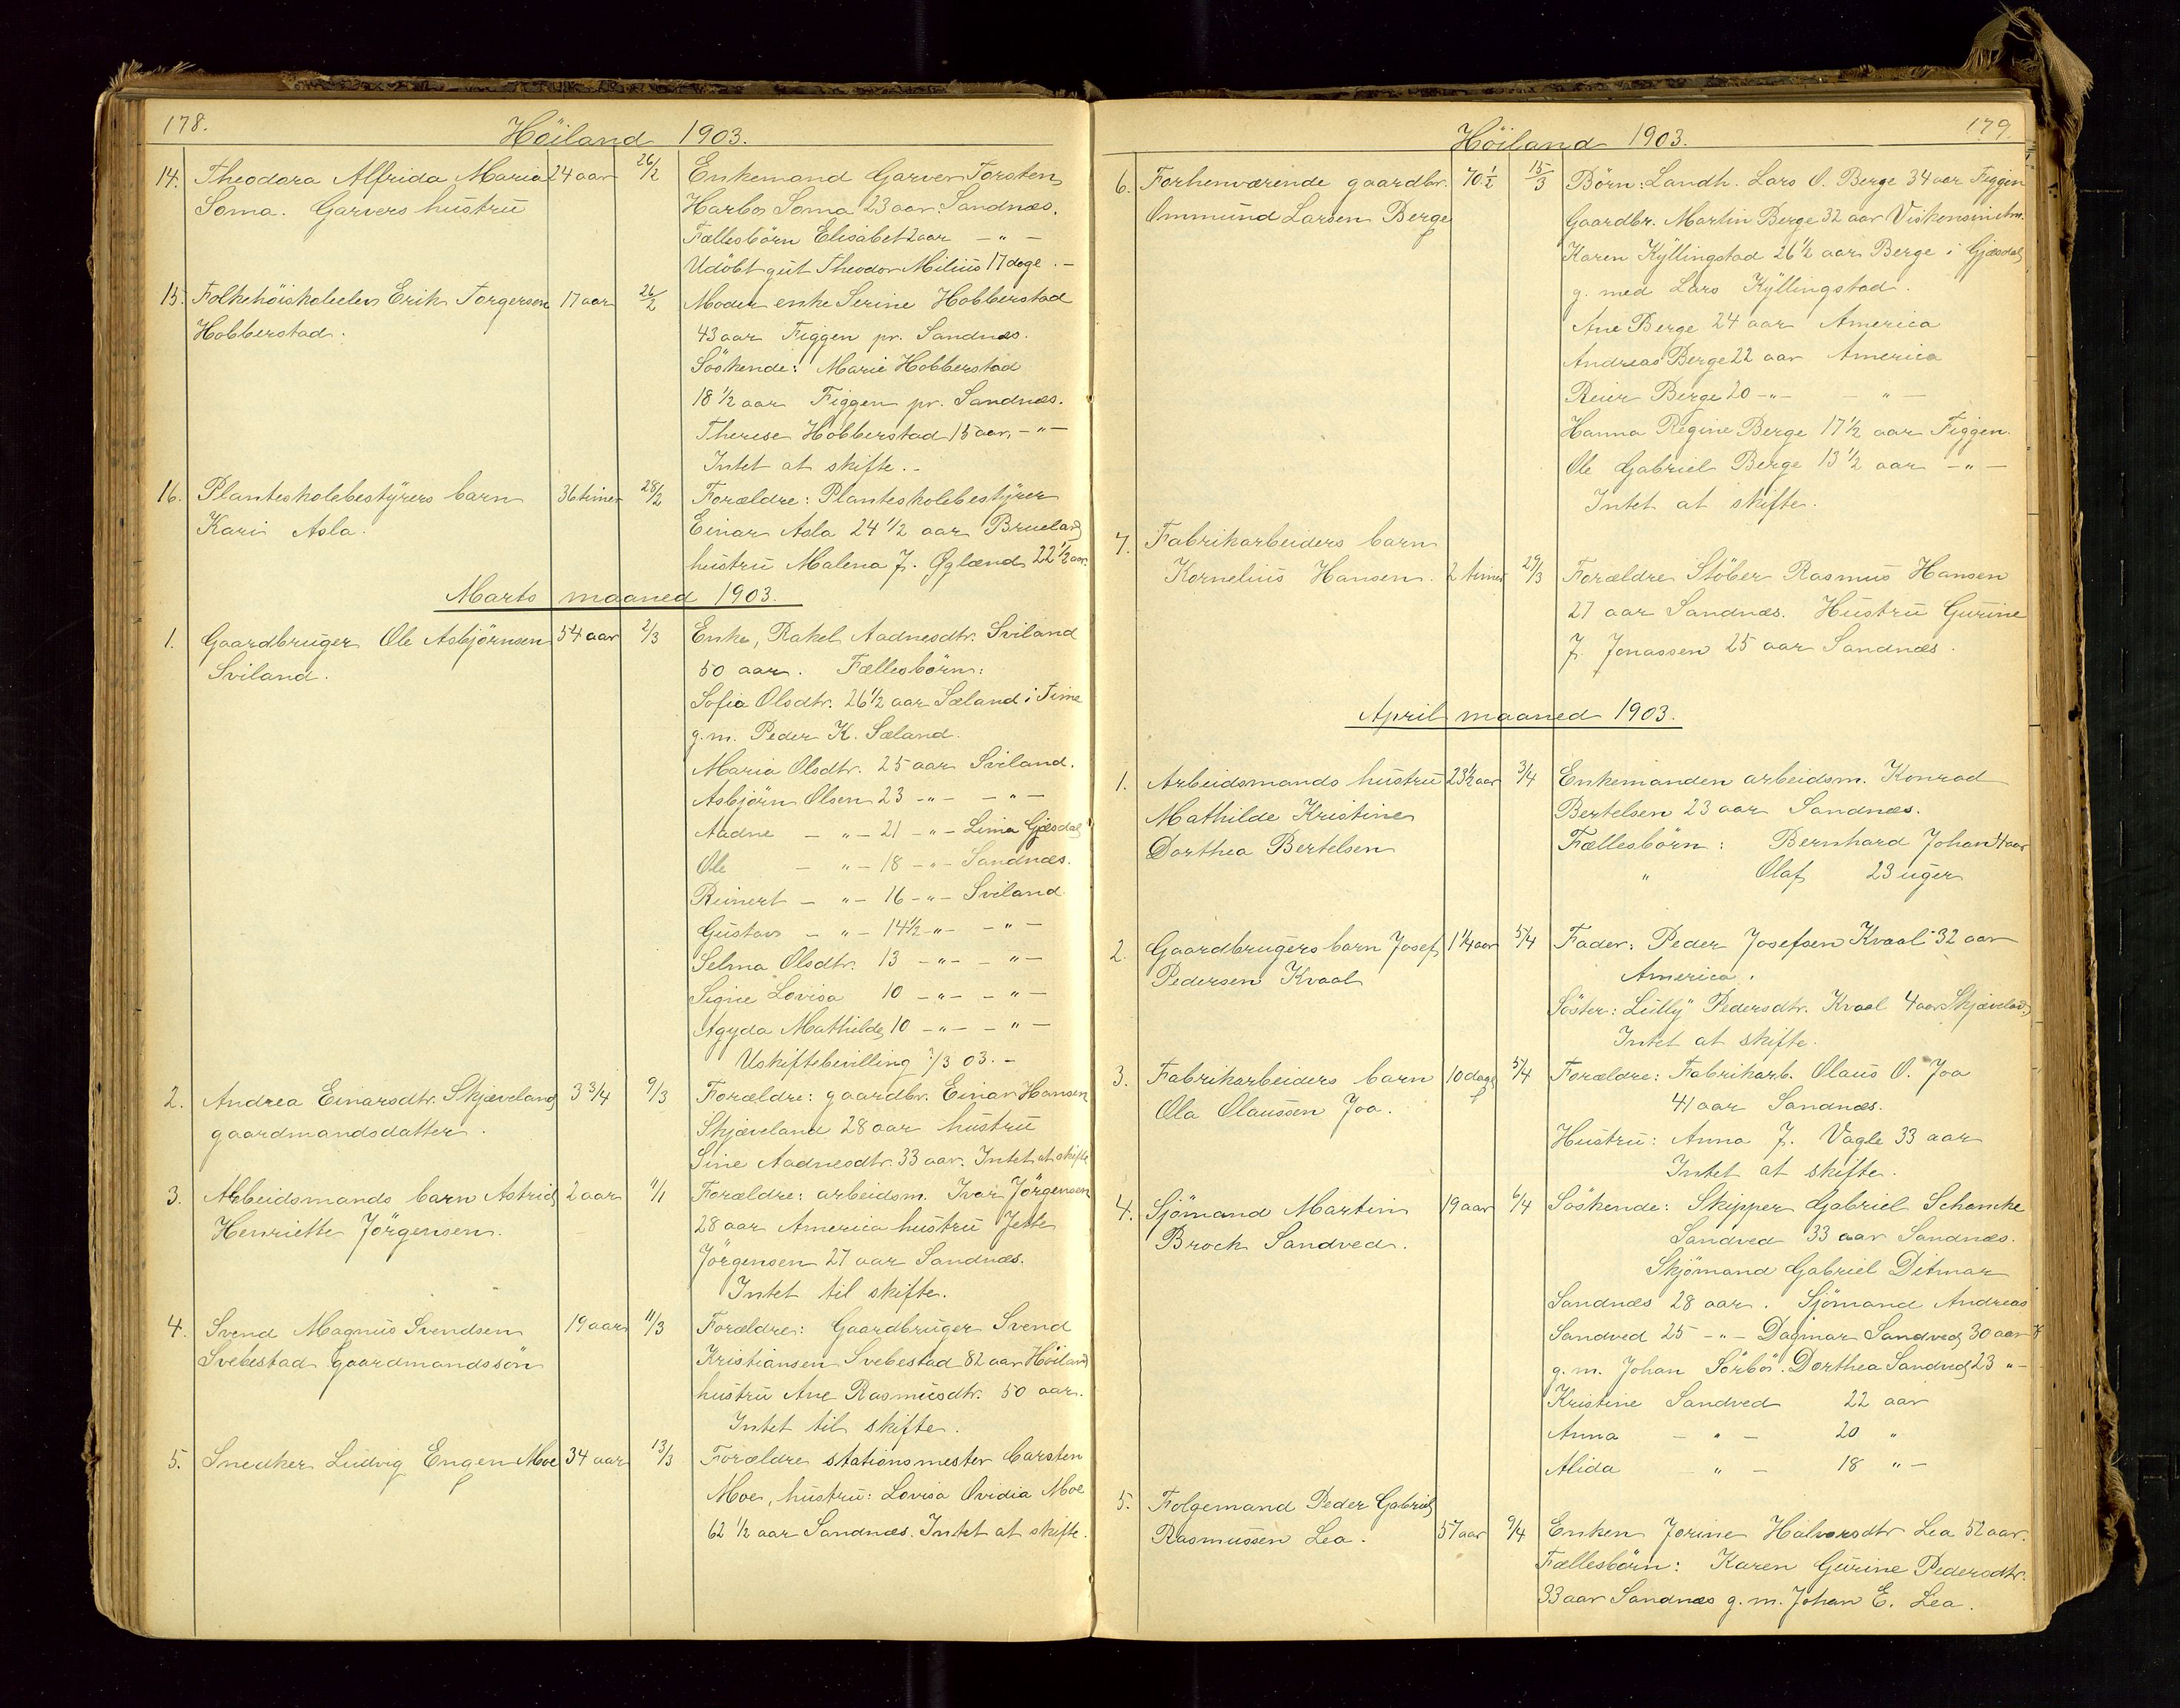 178.
Höiland 1903.
14. Theodora Alfrida Maria 24 aar 26/2 Enkemand Garver Torsten
Soma. Garvers hustru Harbo Soma 23 aar. Sandnæs.
Fællesbörn Elisabet 2 aar - " -
Udöbt gut Theodor Milius 17 dage. -
15. Folkehöiskoleelev Erik Torgersen 17 aar 26/2 Moder enke Serine Hobberstad
Hobberstad. 43 aar Figgen pr. Sandnæs.
Söskende: Marie Hobberstad
18 1/2 aar Figgen pr. Sandnæs.
Therese Hobberstad 15 aar, - " -
Intet at skifte. -
16. Planteskolebestÿrers barn 36 timer 28/2 Forældre: Planteskolebestÿrer
Kari Asla. Einar Asla 24 1/2 aar Brueland
hustru Malena J. Øglænd 22 1/2 aar.
Marts maaned 1903.
1. Gaardbruger Ole Asbjörnsen 54 aar 2/3 Enke, Rakel Aadnesdtr. Sviland
Sviland. 50 aar. Fællesbörn:
Sofia Olsdtr. 26 1/2 aar Sæland i Time
g. m. Peder K. Sæland.
Maria Olsdtr. 25 aar Sviland.
Asbjörn Olsen 23 - " - - " -
Aadne - " - 21 - " - Lima Gjesdal
Ole - " - 18 - " - Sandnæs.
Reinert - " - 16 - " - Sviland
Gustav - " - 14 1/2 - " - - " -
Selma Olsdtr. 13 - " - - " -
Signe Lovisa 10 - " - - " -
Agyda Mathilde 10 - " - - " -
Uskiftebevilling /3 03. -
2. Andrea Einarsdtr. Skjæveland 3 3/4 9/3 Forældre: gaardbr. Einar Hansen
gaardmandsdatter. Skjæveland 28 aar hustru
Sine Aadnesdtr. 33 aar. Intet at skifte
3. Arbeidsmands barn Astrid 2 aar 11/1 Forældre: arbeidsm. Ivar Jörgensen
Henriette Jörgensen. 28 aar America hustru Jette
Jörgensen 27 aar Sandnæs.
Intet til skifte.
4. Svend Magnus Svendsen 19 aar 11/3 Forældre: Gaardbruger Svend
Svebestad gaardmandssön Kristiansen Svebestad 82 aar Höiland
hustru Ane Rasmusdtr. 50 aar.
Intet til skifte.
5. Snedker Ludvig Engen Moe 34 aar 13/3 Forældre stationsmester Carsten
Moe, hustru: Lovisa Ovidia Moe
62 1/2 aar Sandnæs. Intet at skifte.
179.
Höiland 1903.
6. Forhenværende gaardbr. 70 1/2 15/3 Börn: Landh. Lars O. Berge 34 aar Figgen
Ommund Larsen Berge Gaardbr. Martin Berge 32 aar Viskonsin Am.
Karen Kÿllingstad 26 1/2 aar Berge i Gjæsdal
g. med Lars Kÿllingstad.
Ane Berge 24 aar America
Andreas Berge 22 aar America
Reier Berge 20 - " - - " -
Hanna Regine Berge 17 1/2 aar Figgen.
Ole Gabriel Berge 13 1/2 aar - " -
Intet at skifte.
7. Fabrikarbeiders barn
Kornelius Hansen. 2 timer 29/3 Forældre Stöber Rasmus Hansen
27 aar Sandnæs. Hustru Gurine
J. Jonassen 25 aar Sandnæs.
April maaned 1903.
1. Arbeidsmands hustru 23 1/2 aar 3/4 Enkemanden arbeidsm. Konrad
Mathilde Kristine Bertelsen 23 aar Sandnæs.
Dorthea Bertelsen Fællesbörn: Bernhard Johan 4 aar
" Olaf 23 uger
2. Gaardbrugers barn Josef 1 1/4 aar 5/4 Fader: Peder Josefsen Kvaal 32 aar
Pedersen Kvaal America.
Söster: Lully Pedersdtr. Kvaal 4 aar Skjæveland
Intet at skifte.
3. Fabrikarbeiders barn 10 dage 5/4 Forældre: Fabrikarb. Olaus O. Joa
Ola Olaussen Joa. 41 aar Sandnæs.
Hustru: Anna J. Vagle 33 aar
Intet at skifte.
4. Sjömand Martin 19 aar 6/4 Söskende: Skipper Gabriel Schanche
Brock Sandved. Sandved 33 aar Sandnæs.
Skjömand Gabriel Ditmar
Sandnæs 28 aar. Sjömand Andreas
Sandved 25 - " - Dagmar Sandved 30 aar
g. m. Johan Sörbö. Dorthea Sandved 23 " -
Kristine Sandved 22 aar
Anna - " - 20 "
Alida - " - 18 " -
5. Folgemand Peder Gabriel
Rasmussen Lea. 57 aar 9/4 Enken Jorine Halvorsdtr Lea 52 aar.
Fællesbörn: Karen Gurine Pedersdtr.
33 aar Sandnæs g. m. Johan E. Lea.